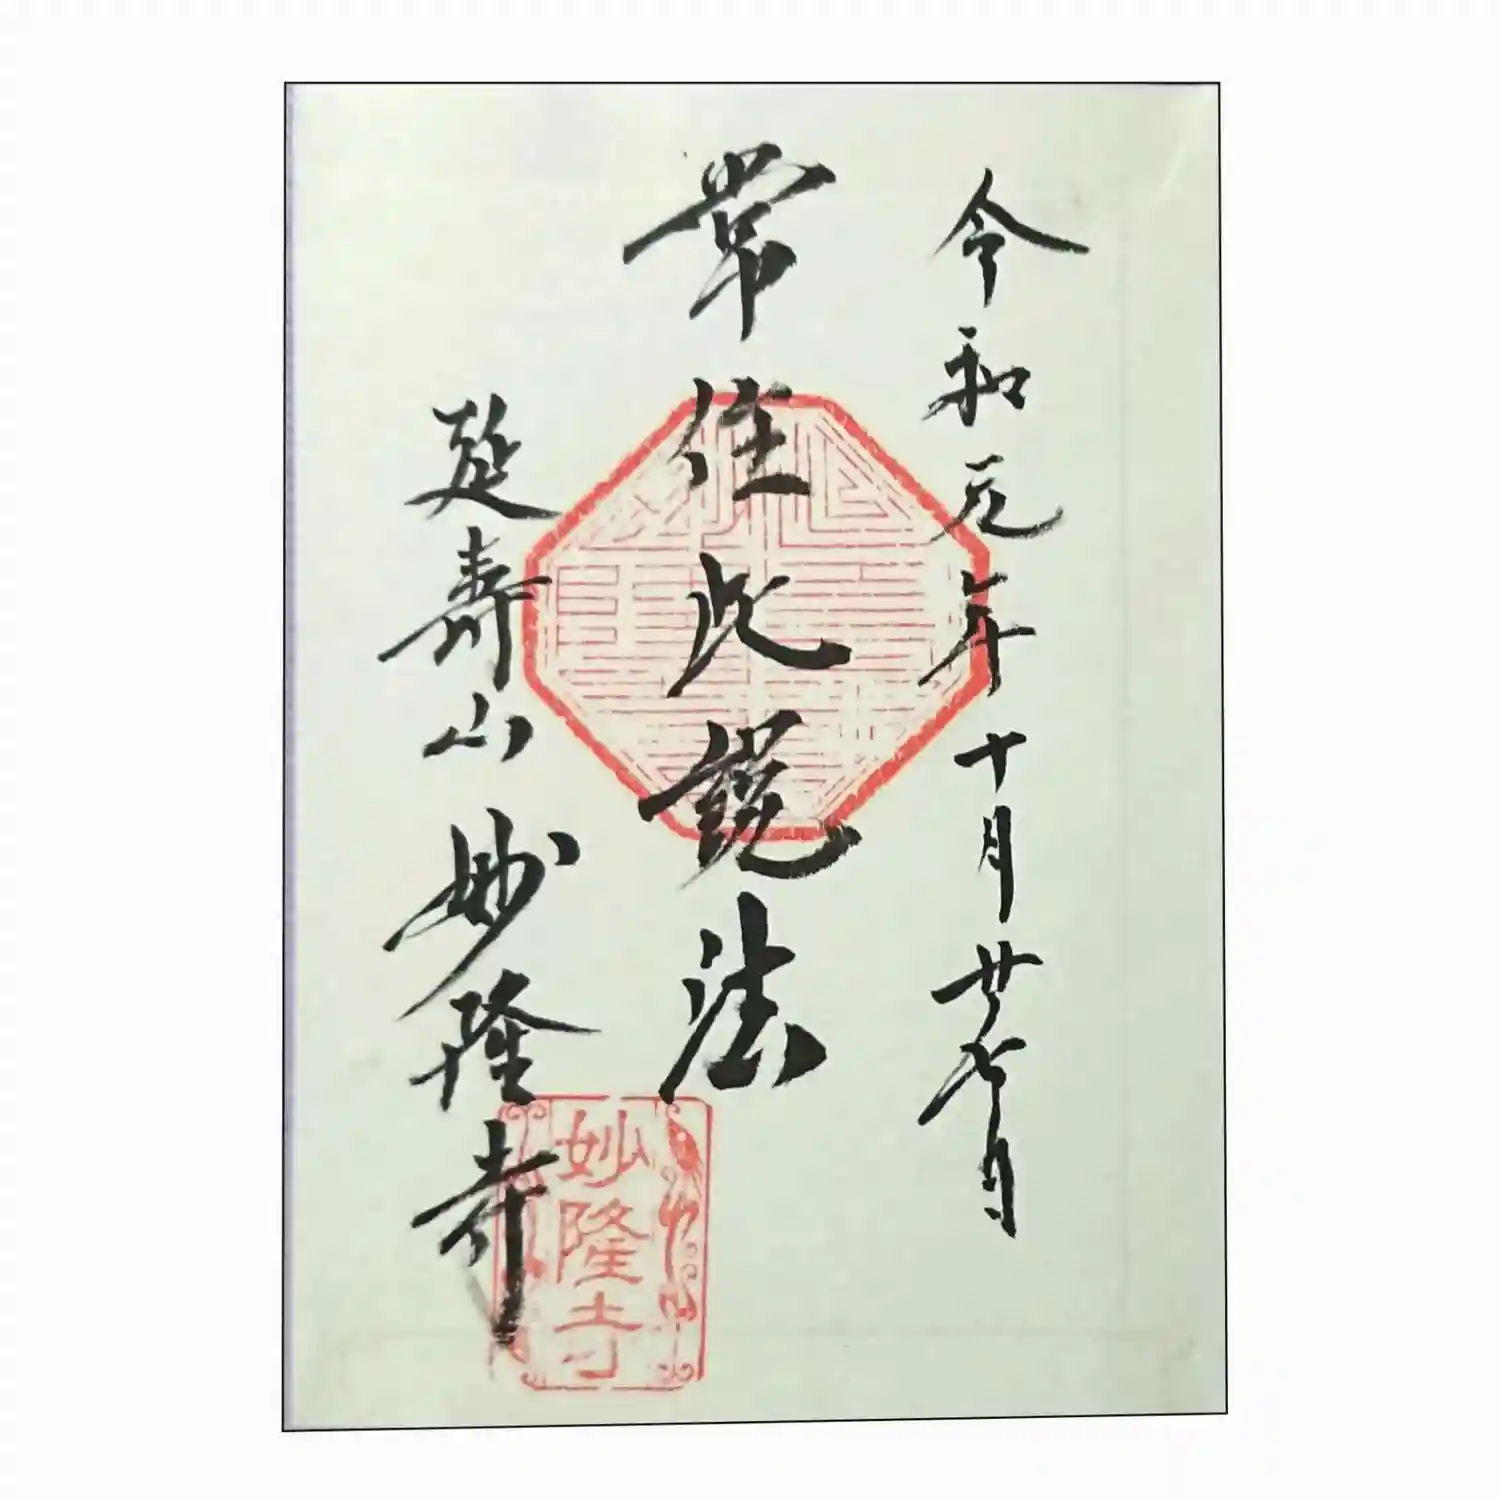 令和元年十月廿七日
常住此說法
延寿山 妙隆寺
妙隆寺